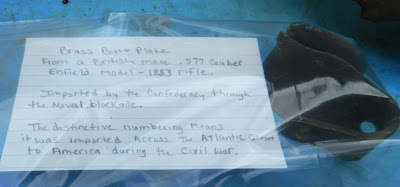 Brass Butt Plate
From a British made .577 Caliber
Enfield Model - 1853 rifle.
Imported by the Confederacy through
the Naval blockade.
The distinctive numbering Means
it was imported Across the Atlantic Ocean
to America during the Civil War.